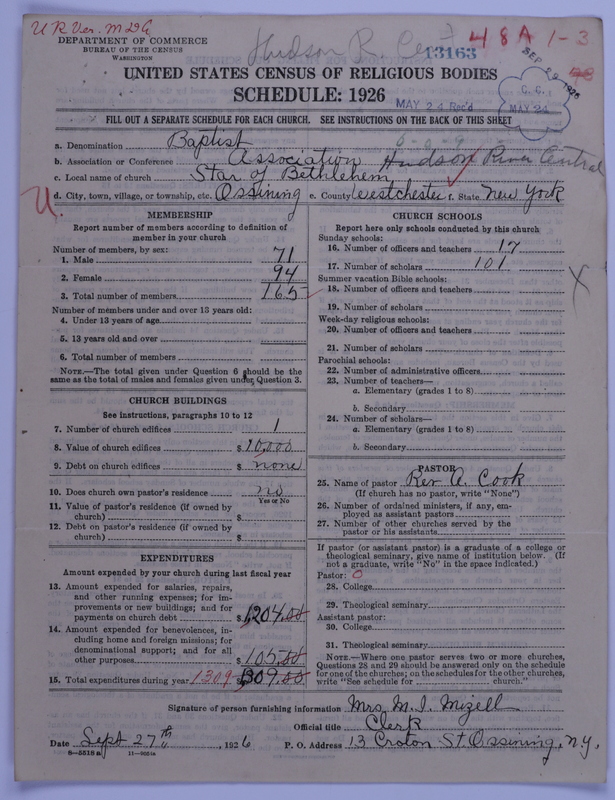 U R Ver. M D G
Hudson R. Cen
13163
48A 1-3
DEPARTMENT OF COMMERCE
BUREAU OF THE CENSUS
WASHINGTON
SEP 29 1926
98
UNITED STATES CENSUS OF RELIGIOUS BODIES
SCHEDULE: 1926
C. C.
MAY 24 Rec'd
MAY 24
FILL OUT A SEPARATE SCHEDULE FOR EACH CHURCH. SEE INSTRUCTIONS ON THE BACK OF THIS SHEET
a. Denomination Baptist
b. Association or Conference Association Hudson River Central
c. Local name of church Star of Bethlehem
d. City, town, village, or township, etc. Ossining e. County Westchester f. State New York
MEMBERSHIP
Report number of members according to definition of
member in your church
Number of members, by sex:
1. Male 71
2. Female 94
3. Total number of members 165
Number of members under and over 13 years old:
4. Under 13 years of age
5. 13 years old and over
6. Total number of members
NOTE.—The total given under Question 6 should be the
same as the total of males and females given under Question 3.
CHURCH BUILDINGS
See instructions, paragraphs 10 to 12
7. Number of church edifices 1
8. Value of church edifices $ 10,000
9. Debt on church edifices $ none
10. Does church own pastor's residence no
Yes or No
11. Value of pastor's residence (if owned by
church) $
12. Debt on pastor's residence (if owned by
church) $
EXPENDITURES
Amount expended by your church during last fiscal year
13. Amount expended for salaries, repairs,
and other running expenses; for im-
provements or new buildings; and for
payments on church debt $ 1204.00
14. Amount expended for benevolences, in-
cluding home and foreign missions; for
denominational support; and for all
other purposes $ 105.00
15. Total expenditures during year 1309 $ 1309.00
CHURCH SCHOOLS
Report here only schools conducted by this church
Sunday schools:
16. Number of officers and teachers 17
17. Number of scholars 101
Summer vacation Bible schools:
18. Number of officers and teachers
19. Number of scholars
Week-day religious schools:
20. Number of officers and teachers
21. Number of scholars
Parochial schools:
22. Number of administrative officers
23. Number of teachers—
a. Elementary (grades 1 to 8)
b. Secondary
24. Number of scholars—
a. Elementary (grades 1 to 8)
b. Secondary
PASTOR
25. Name of pastor Rev A. Cook
(If church has no pastor, write "None")
26. Number of ordained ministers, if any, em-
ployed as assistant pastors
27. Number of other churches served by the
pastor or his assistants
If pastor (or assistant pastor) is a graduate of a college or
theological seminary, give name of institution below. (If
not a graduate, write "No" in the space indicated.)
Pastor: 0
28. College
29. Theological seminary
Assistant pastor:
30. College
31. Theological seminary
NOTE.—Where one pastor serves two or more churches,
Questions 28 and 29 should be answered only on the schedule
for one of the churches; on the schedules for the other churches,
write "See schedule for church."
Signature of person furnishing information Mrs M. I. Mizell
Official title Clerk
Date Sept 27th, 1926 P. O. Address 13 Croton St Ossining, N.Y.
8—5518 a 11—9054a